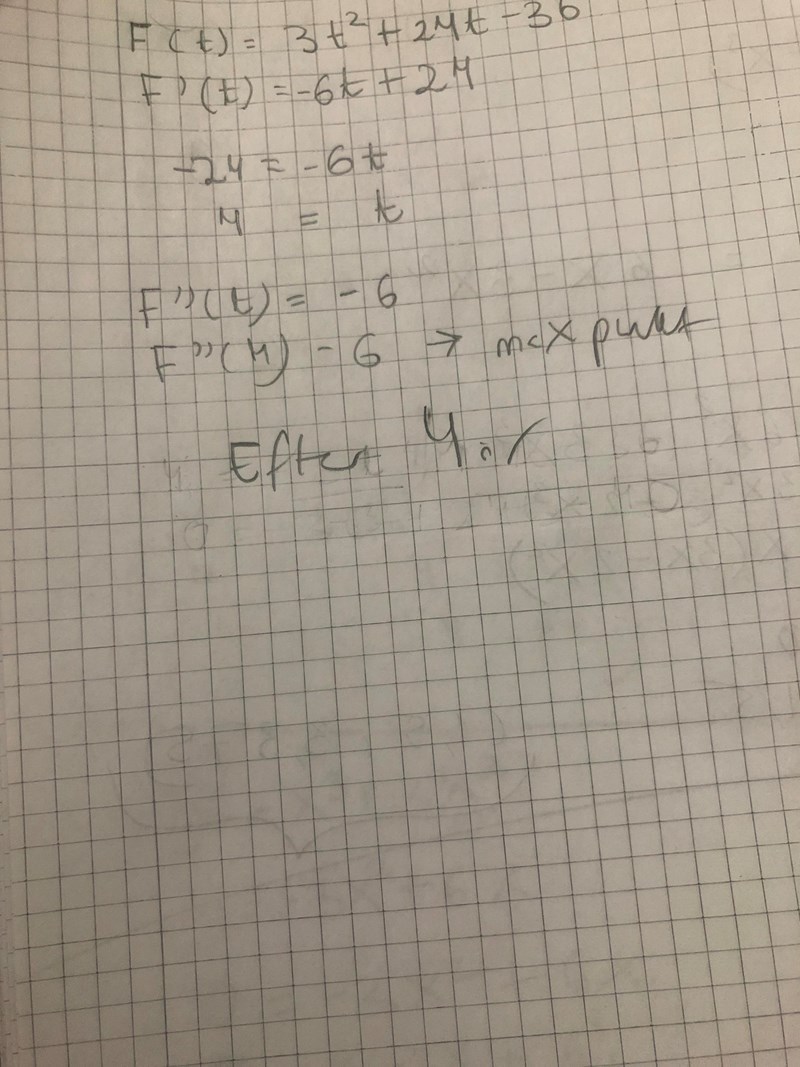 F(t) = 3t² + 24t - 36
F'(t) = -6t + 24
-24 = -6t
4 = t
F''(t) = - 6
F''(4) - 6 → max punkt
Efter 4 år